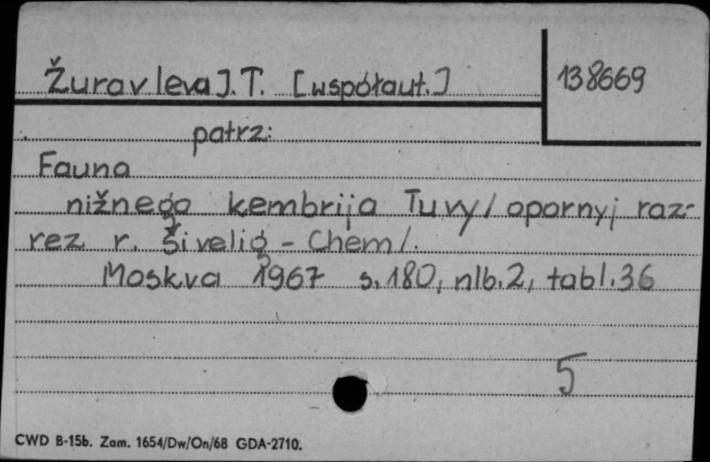 Žuravleva J. T. [współaut.]
138669
patrz:
Fauna
nižnego kembrija Tuvy / opornyj raz-
rez r. Šivelig - Chem /.
Moskva 1967 s. 180, nlb. 2, tabl. 36
5
CWD B-15b. Zam. 1654/Dw/On/68 GDA-2710.